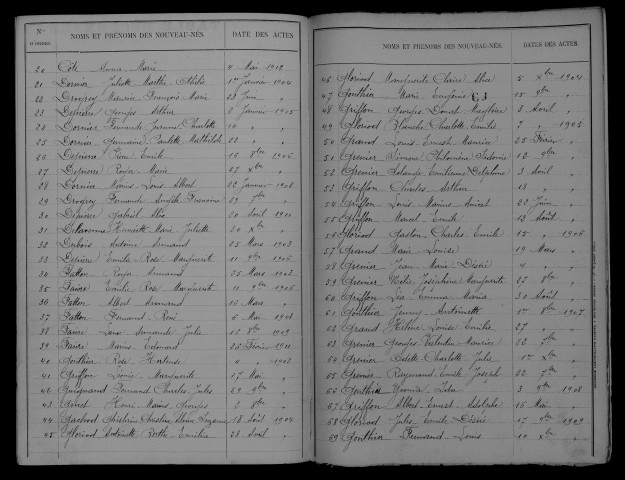 Nos
D'ORDRE
NOMS ET PRÉNOMS DES NOUVEAU-NÉS.
DATE DES ACTES
20 Côte Anna Marie 4 Mai 1902
21 Dornier Juliette Marthe 1er Janvier 1904
22 Drogrey Maurice François Marie 23 Juin "
23 Depierre Georges Arthur 2 Janvier 1905
24 Dornier Fernande Jeanne Charlotte 10 " "
25 Dornier Germaine Paulette Mathilde 22 " "
26 Depierre Léon Emile 15 8bre 1906
27 Depierre Roger Marie 27 Xbre "
28 Dornier Marius Louis Albert 22 Janvier 1908
29 Drogrey Fernande Angèle Francine 29 7bre "
30 Depierre Gabriel 20 Août
31 Henriette Marie Juliette 30 Xbre "
32 Dubois Antoine Armand 25 Mars 1903
33 Emilie Rose Marguerite 11 9bre 1906
34 Fatton Roger Armand 25 Mars 1903
35 Faivre Emilie Rose Marguerite 11 9bre 1906
36 Fatton Albert Armand 16 Mars "
37 Fatton Fernand René 6 Mai 1908
38 Favre Armande Julie 8bre 1909
39 Favre Marius Edouard 26 Février
40 Gonthier Rose Hortense 1902
41 Griffon Léonie Marguerite 17 Mai "
42 Guignard Fernand Charles Jules 29 9bre "
43 Henri Marius Georges 2 8bre "
44 Christine 18 Août 1904
45 Gloriod Antoinette Berthe Emilie 28 Avril "
NOMS ET PRÉNOMS DES NOUVEAU-NÉS.
DATES DES ACTES
46 Gloriod Marguerite Claire Alice 5 Xbre 1904
47 Gonthier Marie Eugénie 15 9bre "
48 Griffon Georges 3 Avril "
49 Gloriod Blanche Charlotte Emilie 7 " 1905
50 Girard Louis Ernest Maurice 25 Février "
51 Grenier Simone Philomène 12 9bre "
52 Grenier Solange Emilienne Delphine 3 Avril "
53 Griffon Charles Arthur 13 " "
54 Griffon Louis Marius 22 Juin "
55 Griffon Marcel Emile 12 Août "
56 Gloriod Gaston Charles Emile 15 " 1906
57 Girard Marie Louise 19 Mars "
58 Grenier Jean Marie Désiré 4 " "
59 Grenier Joséphine Marguerite 27 8bre "
60 Griffon Léa Emma Maria 30 Août "
61 Gonthier Jenny Antoinette 1er 8bre 1907
62 Girard Hélène Louise Emilie 27 " "
63 Grenier Georges Valentin Maurice 30 7bre "
64 Grenier Odette Charlotte Julie 1er Xbre "
65 Grenier Raymond Emile Joseph 22 7bre "
66 Gonthier 3 9bre 1908
67 Griffon Albert Ernest 16 Mai "
68 Gloriod Jules Emile Désiré 17 9bre 1909
69 Gonthier Fernand Louis 10 Xbre "